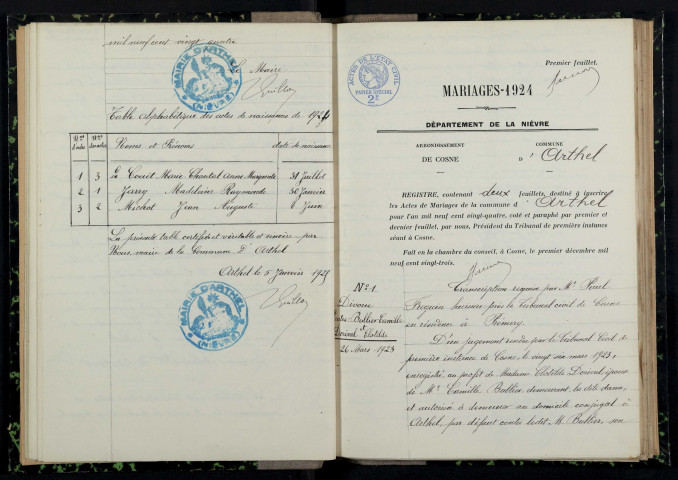 mil neuf cent vingt quatre
Le Maire
MAIRIE D'ARTHEL
(NIÈVRE)
Table alphabétique des actes de naissance de 1924
Nos d'ordre
Nos des actes
Noms et Prénoms
date de naissance
1 3 Le Marie Chantal Anne Marguerite 31 Juillet
2 1 Jarry Madeleine Raymonde 30 Janvier
3 2 Michot Jean Auguste 8 Juin
La présente table certifiée véritable et sincère par
Nous, maire de la Commune d'Arthel
Arthel le 5 Janvier 1925
MAIRIE D'ARTHEL
(NIÈVRE)
Premier feuillet.
ACTES DE L'ÉTAT CIVIL
PAPIER SPÉCIAL
2F
MARIAGES-1924
DÉPARTEMENT DE LA NIÈVRE
ARRONDISSEMENT
DE COSNE
COMMUNE
D' Arthel
REGISTRE, contenant deux feuillets, destiné à inscrire
les Actes de Mariages de la commune d'Arthel
pour l'an mil neuf cent vingt-quatre, coté et paraphé par premier et
dernier feuillet, par nous, Président du Tribunal de première instance
séant à Cosne.
Fait en la chambre du conseil, à Cosne, le premier décembre mil
neuf cent vingt-trois.
No 1
Divorce
Bullier Camille
et
Dorient Clotilde
26 Mars 1923
Transcription requise par Me
près le Tribunal civil de Cosne
en résidence à Prémery.
D'un jugement rendu par le Tribunal Civil de
première instance de Cosne, le vingt six mars 1923,
enregistré, au profit de Madame Clotilde Dorient, épouse
de Mr Camille Bullier, demeurant, la dite dame,
et autorisée à demeurer au domicile conjugal à
Arthel, par défaut contre ledit M. Bullier, son